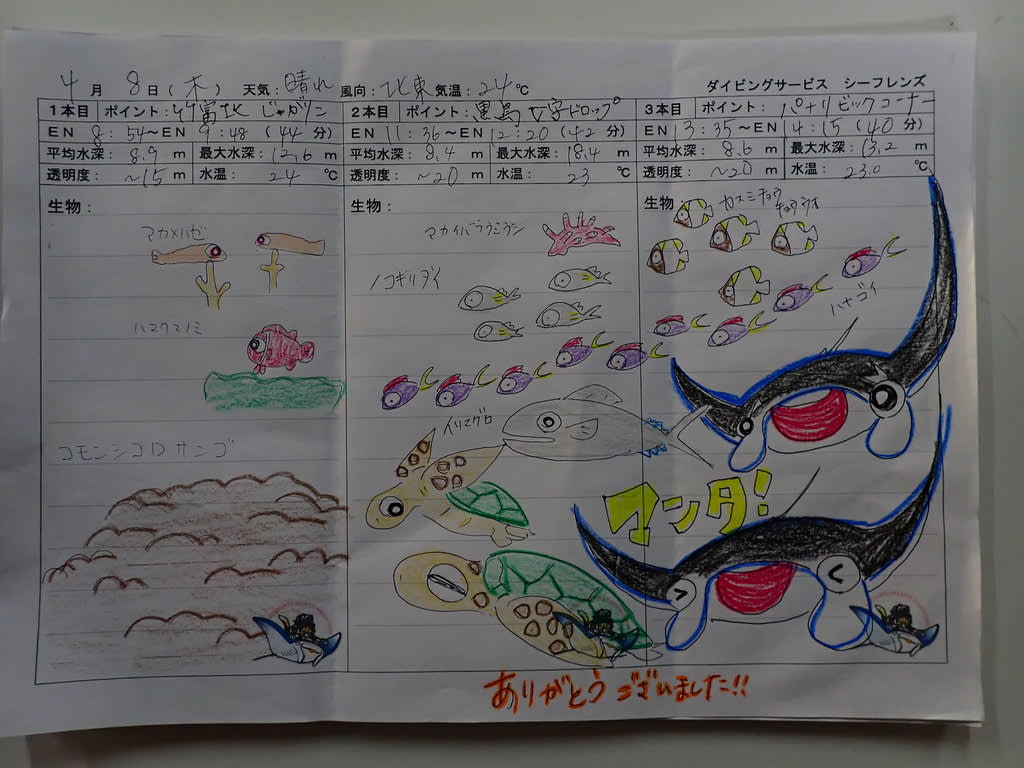 4月 8日(木) 天気:晴れ 風向:北東 気温:24℃ ダイビングサービス シーフレンズ
1本目 ポイント:竹富北 じゃがりこ 2本目 ポイント:黒島V字ドロップ 3本目 ポイント:パナリビックコーナー
EN 8:54~EN 9:48 (44分) EN 11:36~EN 12:20 (42分) EN 13:35~EN 14:15 (40分)
平均水深:8.9 m 最大水深:12.6 m 平均水深:8.4 m 最大水深:18.4 m 平均水深:8.6 m 最大水深:13.2 m
透明度:~15 m 水温:24 ℃ 透明度:~20 m 水温:23 ℃ 透明度:~20 m 水温:23.0 ℃
生物: 生物: 生物
マカメハゼ
ハマクマノミ
コモンシコロサンゴ
マカイバラウミウシ
ノコギリダイ
イソマグロ
カスミチョウチョウウオ
ハナゴイ
マンタ!
ありがとうございました!!